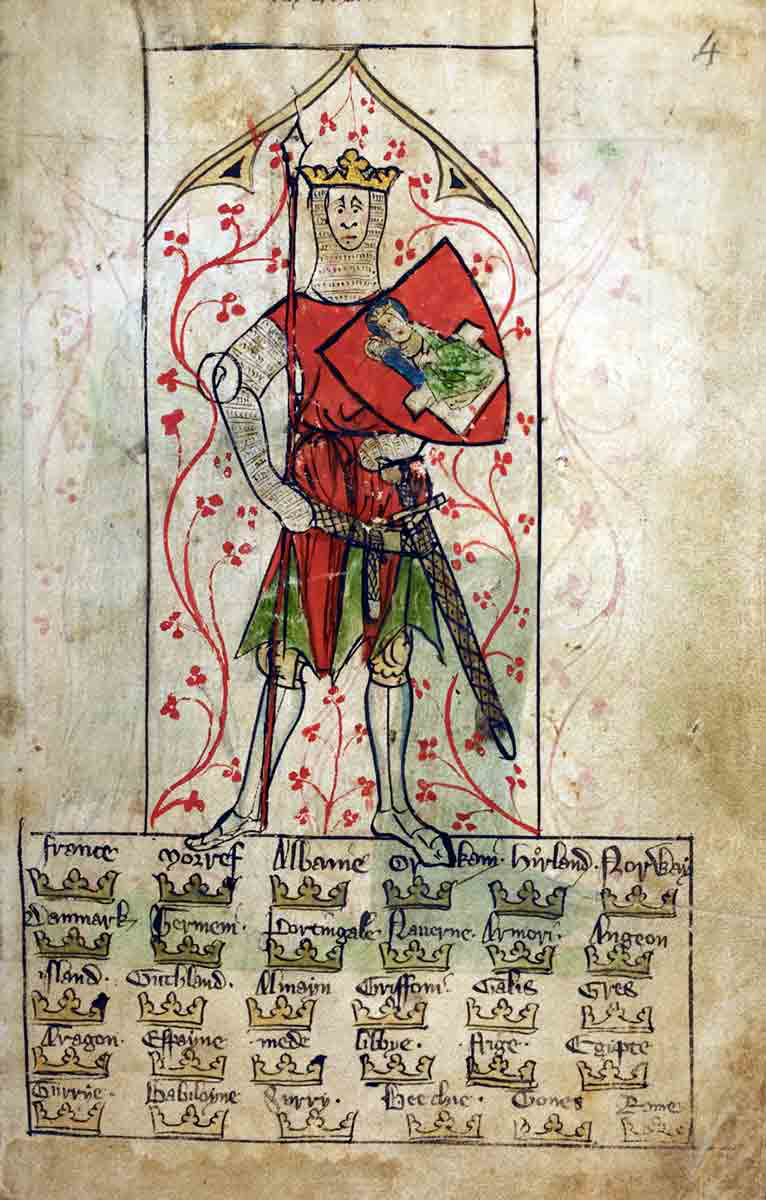 4
france norref Albanie Orkani hirland. Norway
Danmark Germeni. Portingale Nauerne. Armori. Angeon
island. Guthland. Almayn Griffoni Galis Gres
Aragon. Espayne mede libye. Egipte
Surrye. Babiloyne Gones Rome